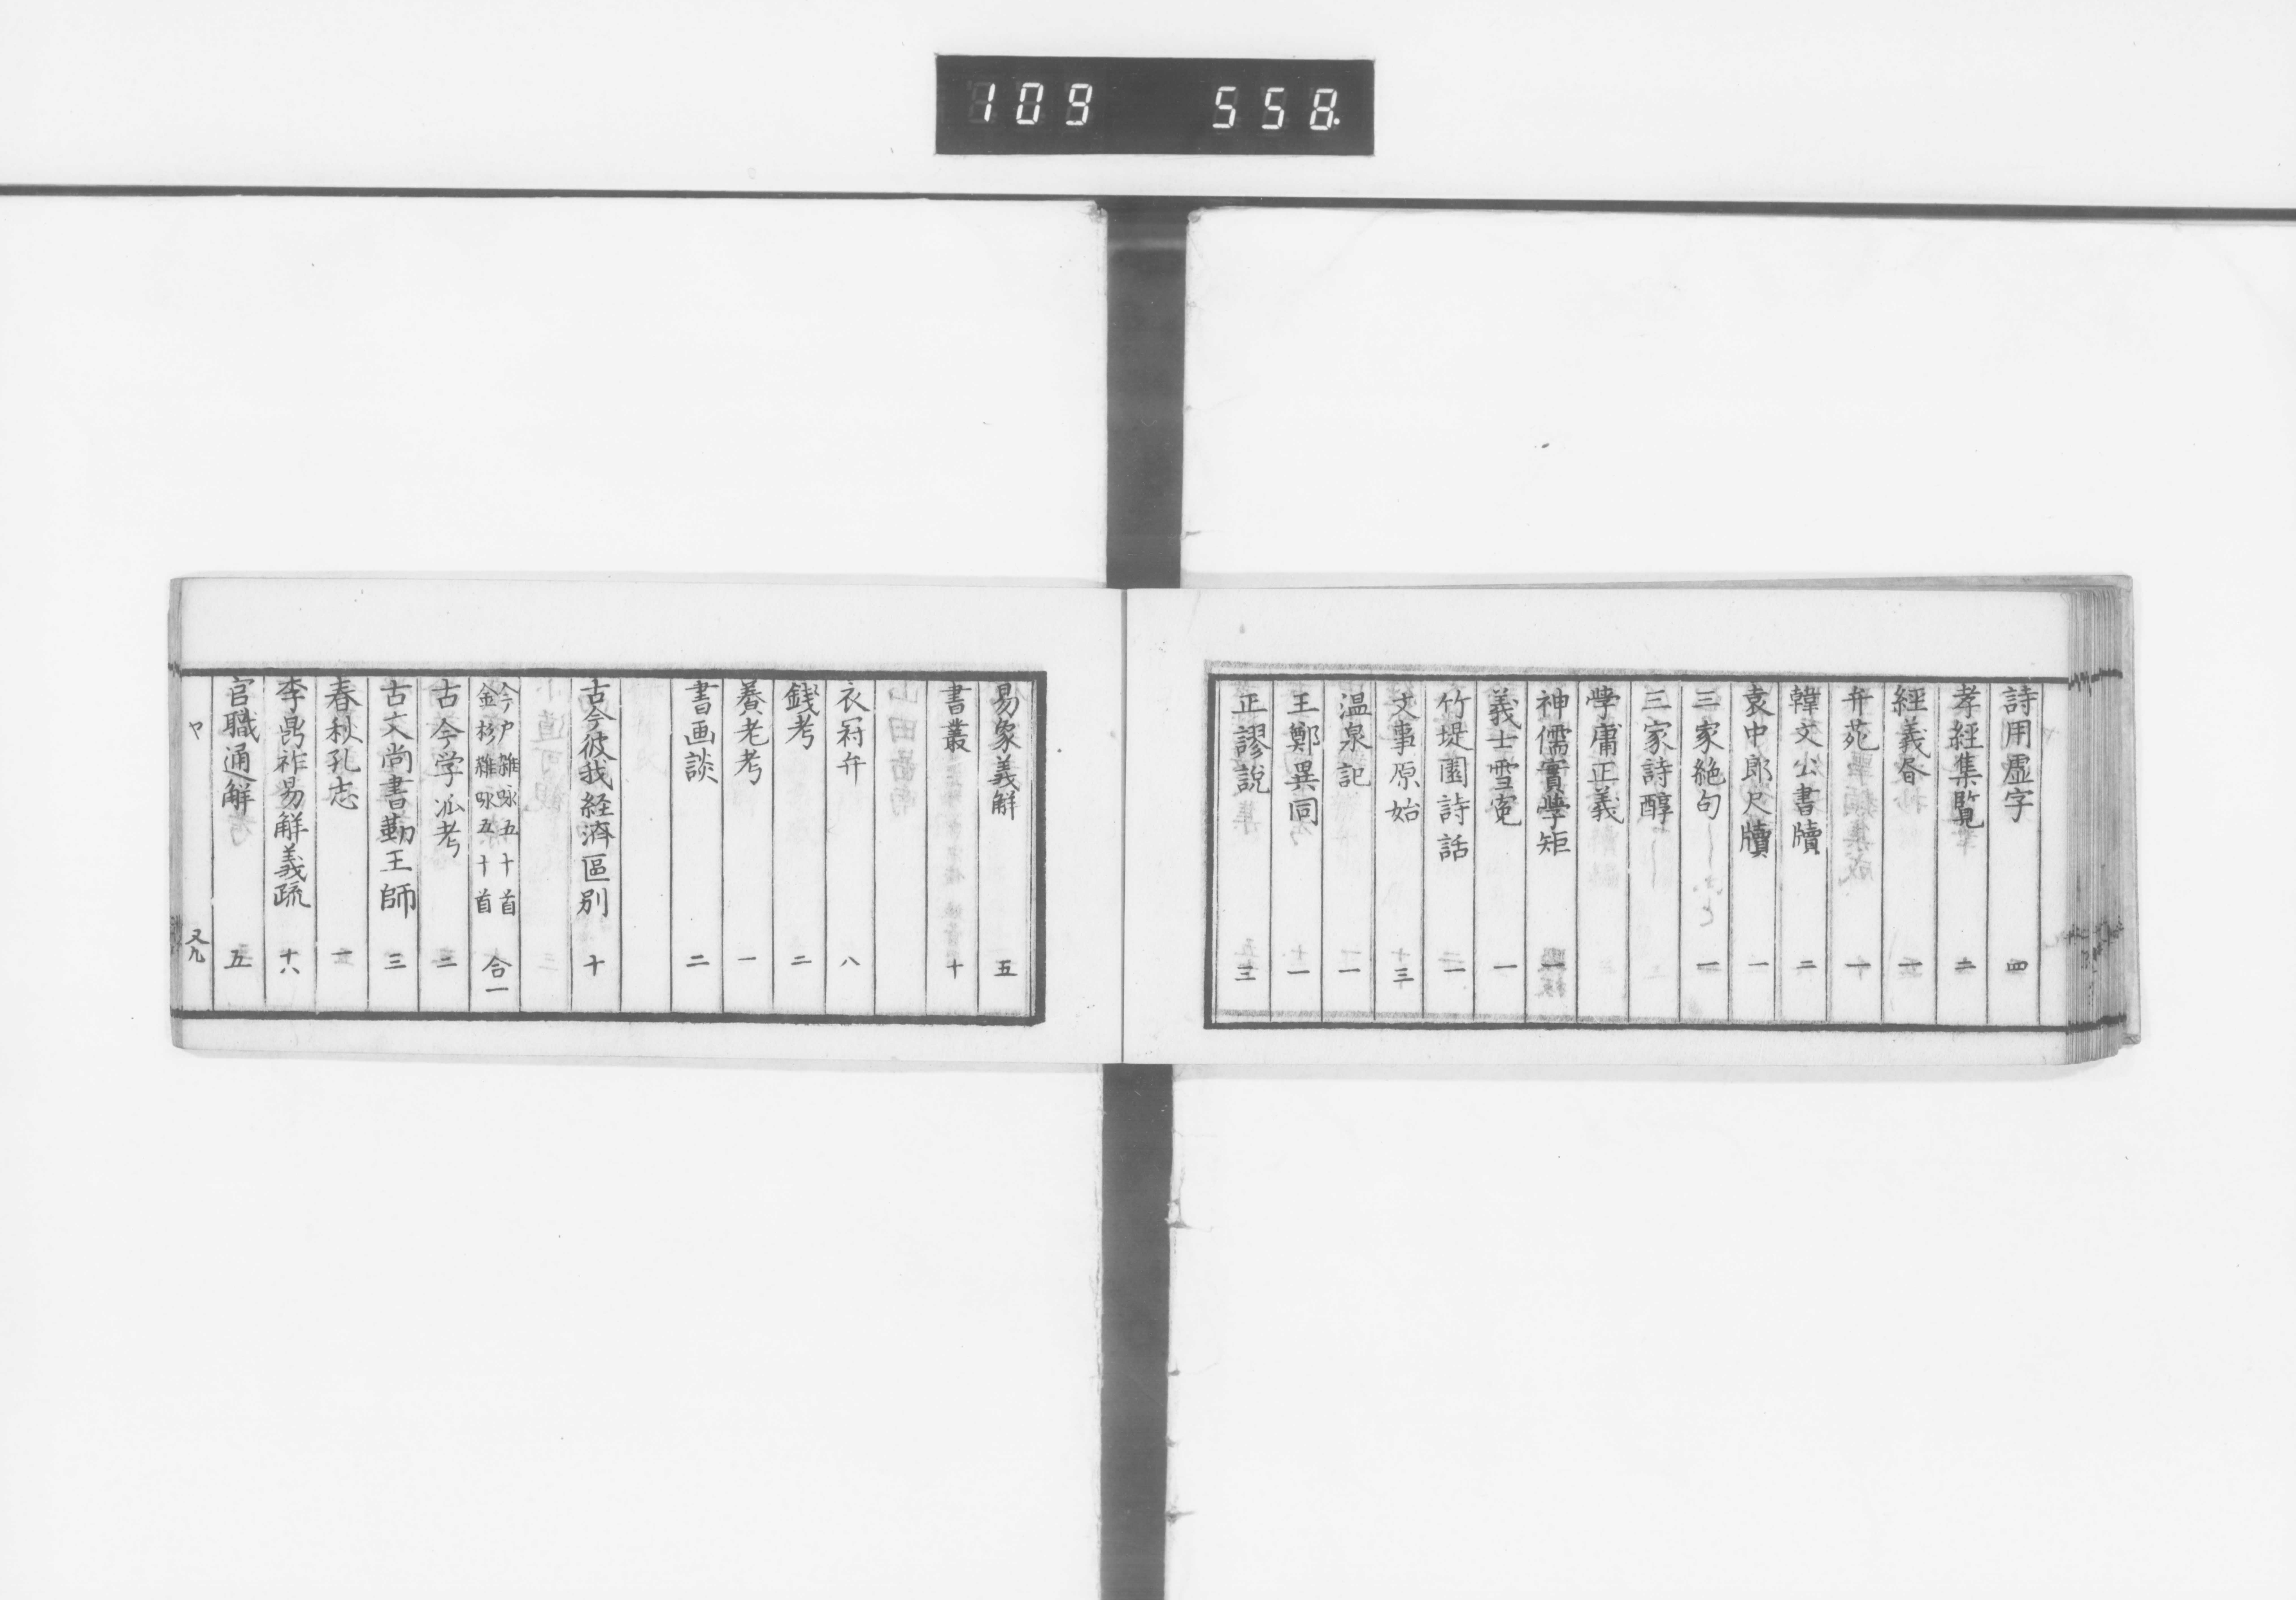 109 558.
詩用虚字 四
孝經集覧 二
經義昏 一
弁苑 一
韓文公書牘 二
袁中郎尺牘 一
三家絶句 一
三家詩醇
學庸正義
神儒實學矩 一
義士雪冤 一
竹堤園詩話 一
文事原始 三
温泉記 一
王鄭異同 一
正謬説 三
易象義解 五
書叢 十
衣冠弁 八
錢考 二
養老考 一
書画談 二
古今彼我経済區別 十
今戸雜咏五十首
金杉雜咏五十首 合一
古今学派考 二
古文尚書勤王師 三
春秋孔志 一
李鼎祚易解義疏 十八
官職通解 五
又九